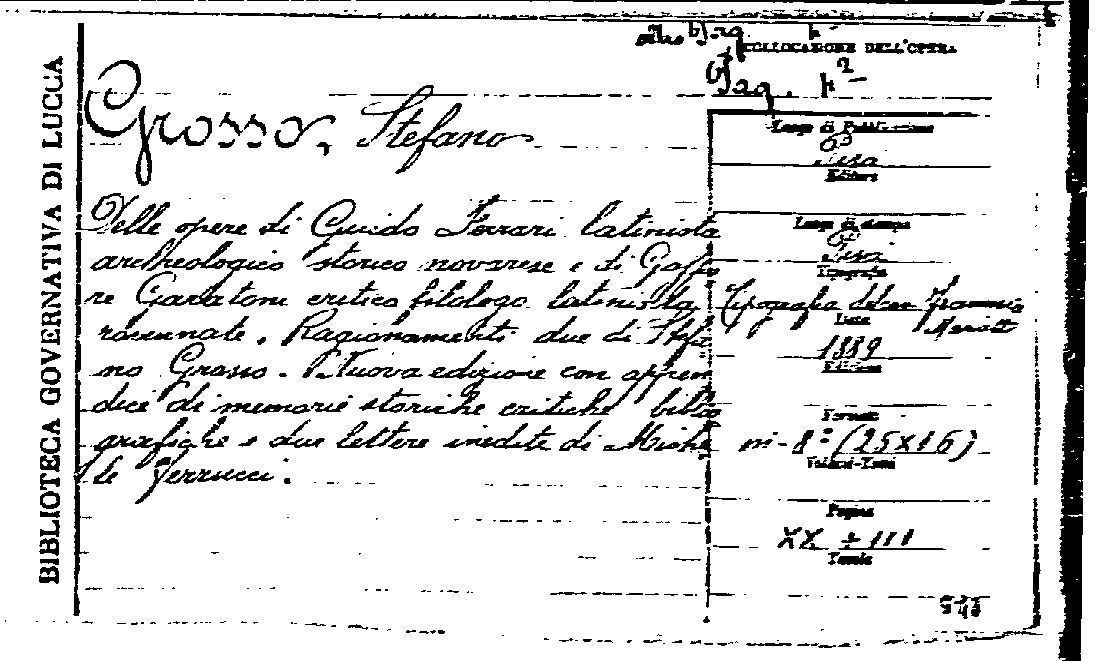 BIBLIOTECA GOVERNATIVA DI LUCCA
COLLOCAZIONE DELL'OPERA
Grosso, Stefano
Luogo di Pubblicazione
Pisa
Editore
Delle opere di Guido Ferrari latinista
archeologico storico novarese e di Gaspa
re Garatoni critico filologo latinista
ravennate. Ragionamenti due di Stefa
no Grosso - Nuova edizione con appen
dice di memorie storiche critiche biblio
grafiche e due lettere inedite di Miche
le Ferrucci.
Luogo di stampa
Pisa
Tipografia
Tipografia del cav. Francesco
Mariotti
Data
1889
Edizione
Formato
in-8° (25x16)
Volumi-Tomi
Pagine
XX + 111
Tavole